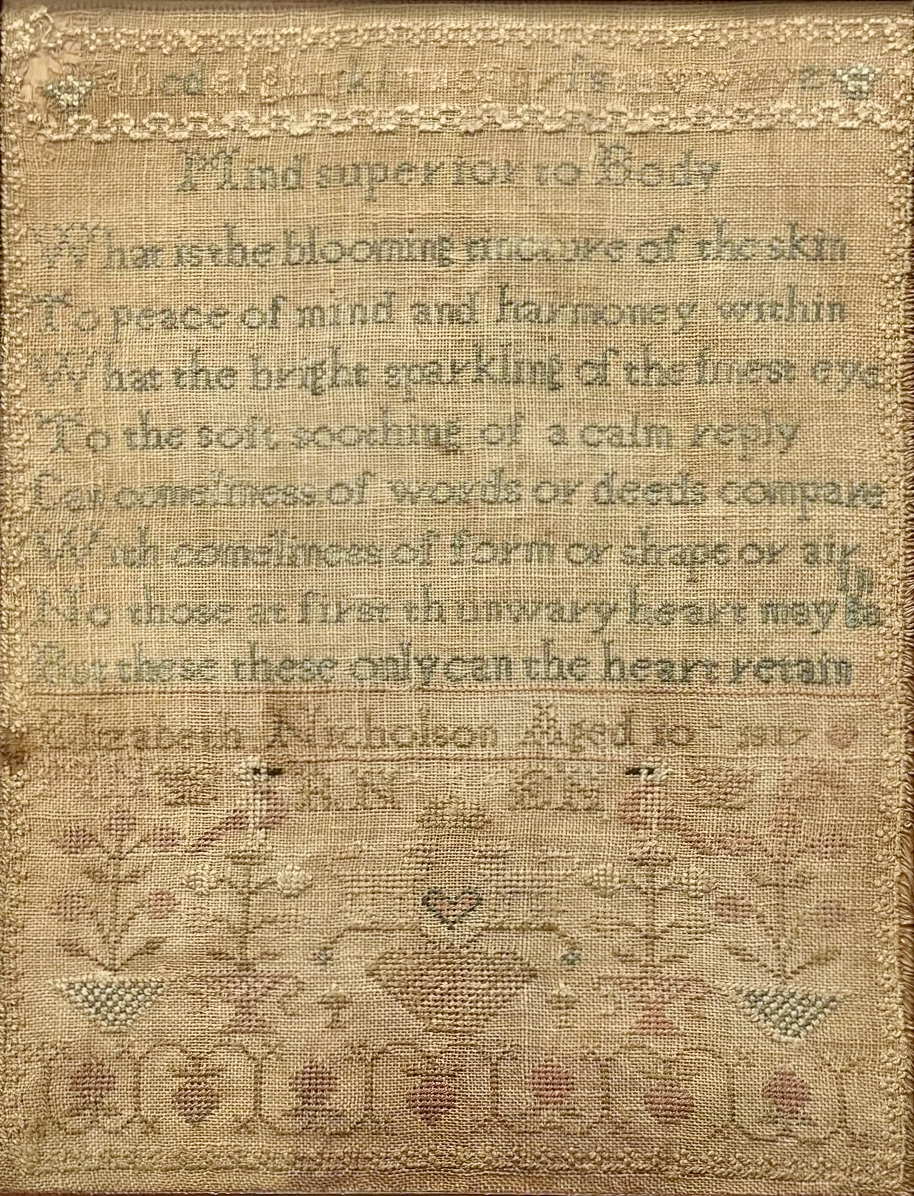 a b c d e f g h i k l m n o p q r s t u v w x y z
Mind superior to Body
What is the blooming tincture of the skin
To peace of mind and harmoney within
What the bright sparkling of the finest eye
To the soft soothing of a calm reply
Can comeliness of words or deeds compare
With comeliness of form or shape or air
No those at first th unwary heart may
But these these only can the heart retain
Elizabeth Nicholson Aged 10